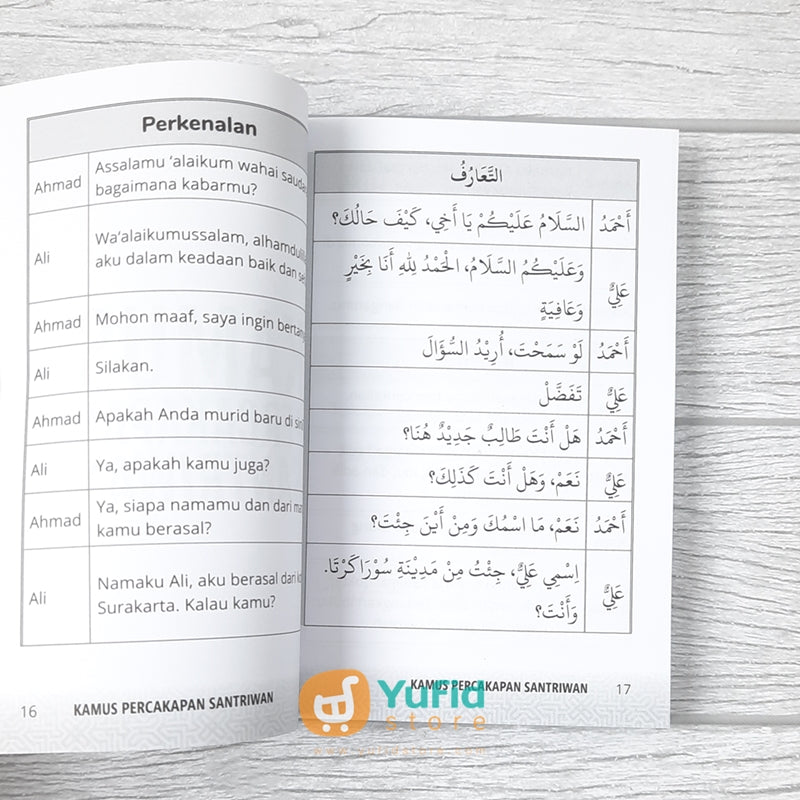 Perkenalan
Ahmad
Assalamu ‘alaikum wahai
bagaimana kabarmu?
Ali
Wa‘alaikumussalam,
aku dalam keadaan baik dan
Ahmad
Mohon maaf, saya ingin
Ali
Silakan.
Ahmad
Apakah Anda murid baru di
Ali
Ya, apakah kamu juga?
Ahmad
Ya, siapa namamu dan dari
kamu berasal?
Ali
Namaku Ali, aku berasal dari
Surakarta. Kalau kamu?
16 KAMUS PERCAKAPAN SANTRIWAN
التَّعَارُفُ
أَحْمَدُ
السَّلَامُ عَلَيْكُمْ يَا أَخِي، كَيْفَ حَالُكَ؟
عَلِيٌّ
وَعَلَيْكُمُ السَّلَامُ، الْحَمْدُ لِلهِ أَنَا بِخَيْرٍ
وَعَافِيَةٍ
أَحْمَدُ
لَوْ سَمَحْتَ، أُرِيْدُ السُّؤَالَ
عَلِيٌّ
تَفَضَّلْ
أَحْمَدُ
هَلْ أَنْتَ طَالِبٌ جَدِيْدٌ هُنَا؟
عَلِيٌّ
نَعَمْ، وَهَلْ أَنْتَ كَذَلِكَ؟
أَحْمَدُ
نَعَمْ، مَا اسْمُكَ وَمِنْ أَيْنَ جِئْتَ؟
عَلِيٌّ
اِسْمِي عَلِيٌّ، جِئْتُ مِنْ مَدِيْنَةِ سُوْرَاكَرْتَا.
وَأَنْتَ؟
KAMUS PERCAKAPAN SANTRIWAN 17
Yufid
store